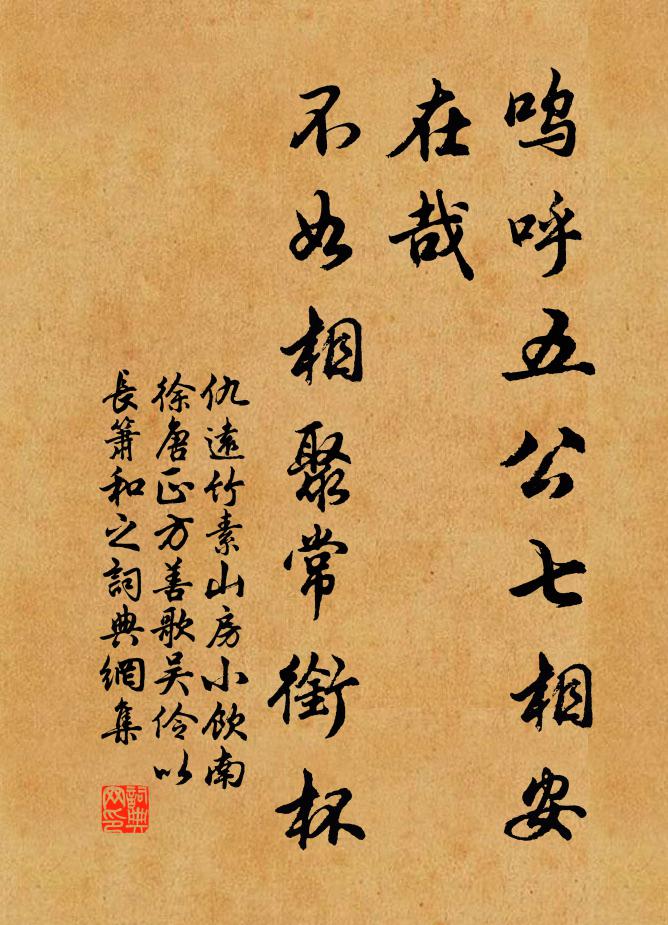 嗚呼五公七相安
在哉
不如相聚常銜杯
仇遠竹素山房小飲南
徐唐正方善歌吴伶以
長簫和之詞典網集
詞典
网印